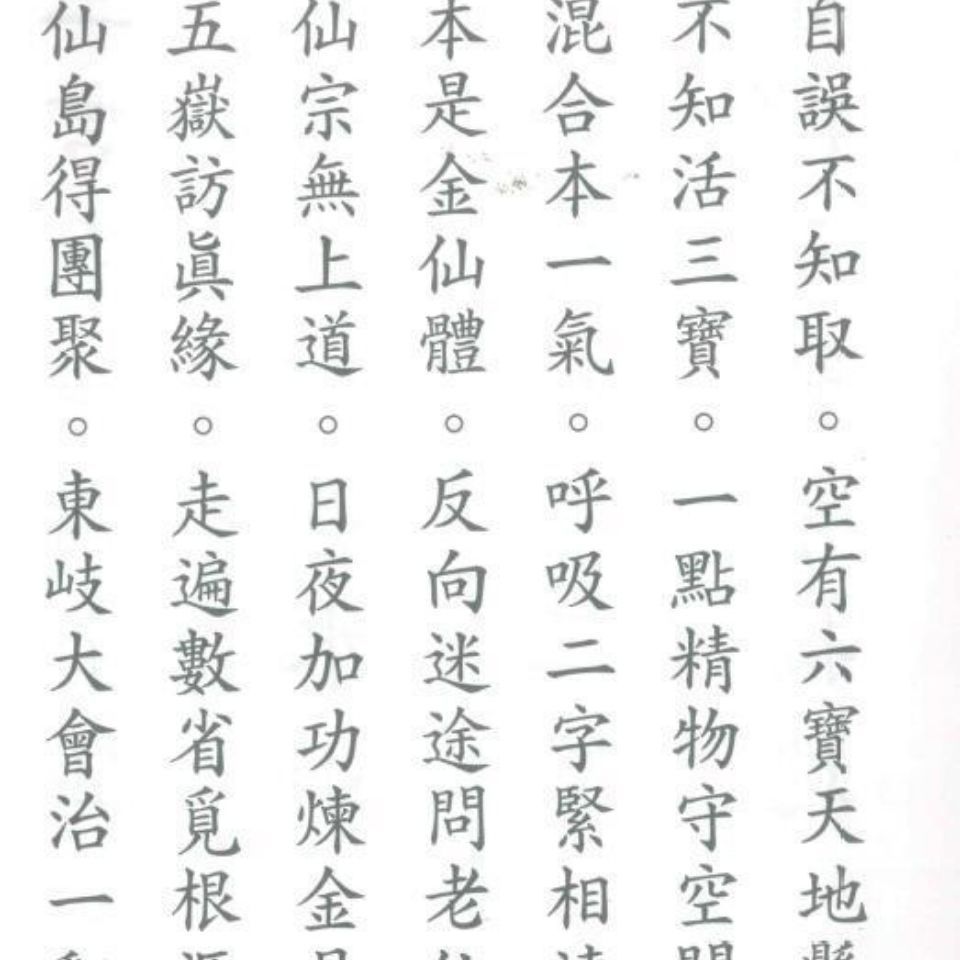 自誤不知取。空有六寶天地
不知活三寶。一點精物守空
混合本一氣。呼吸二字緊相
本是金仙體。反向迷途問老
仙宗無上道。日夜加功煉金
五嶽訪眞緣。走遍數省覓根
仙島得團聚。東岐大會治一